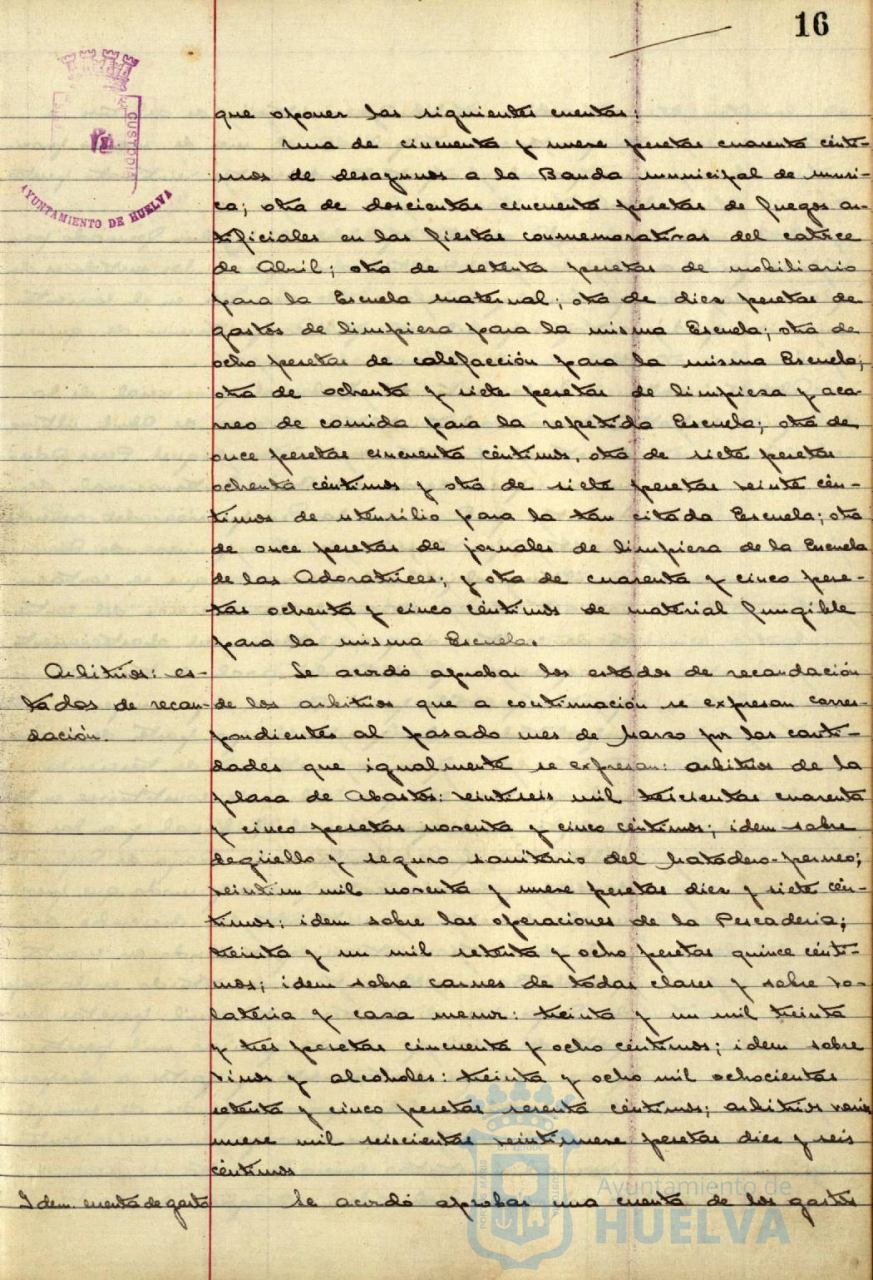 16
CUSTODIA
AYUNTAMIENTO DE HUELVA
que oponer las siguientes cuentas:
Una de cincuenta y nueve pesetas cuarenta cénti-
mos de desayunos a la Banda municipal de músi-
ca; otra de doscientas cincuenta pesetas de fuegos ar-
tificiales en las fiestas conmemorativas del catorce
de Abril; otra de setenta pesetas de mobiliario
para la Escuela maternal; otra de diez pesetas de
gastos de limpieza para la misma Escuela; otra de
ocho pesetas de calefacción para la misma Escuela;
otra de ochenta y siete pesetas de limpieza y aca-
rreo de comida para la repetida Escuela; otra de
once pesetas cincuenta céntimos, otra de siete pesetas
ochenta céntimos y otra de siete pesetas veinte cén-
timos de utensilio para la tan citada Escuela; otra
de once pesetas de jornales de limpieza de la Escuela
de las Adoratrices; y otra de cuarenta y cinco pese-
tas ochenta y cinco céntimos de material fungible
para la misma Escuela.
Arbitrios: es-
tados de recau-
dación.
Se acordó aprobar los estados de recaudación
de los arbitrios que a continuación se expresan corres-
pondientes al pasado mes de Marzo por las canti-
dades que igualmente se expresan: arbitrios de la
plaza de Abastos: veintiseis mil trescientas cuarenta
y cinco pesetas noventa y cinco céntimos; idem sobre
degüello y seguro sanitario del Matadero-perneo;
veintiun mil noventa y nueve pesetas diez y siete cén-
timos; idem sobre las operaciones de la Pescadería;
treinta y un mil setenta y ocho pesetas quince cénti-
mos; idem sobre carnes de todas clases y sobre vo-
latería y caza menor: treinta y un mil treinta
y tres pesetas cincuenta y ocho céntimos; idem sobre
vinos y alcoholes: treinta y ocho mil ochocientas
setenta y cinco pesetas sesenta céntimos; arbitrios varios
nueve mil seiscientas veintinueve pesetas diez y seis
céntimos
Idem. cuenta de gasto
Se acordó aprobar una cuenta de los gastos
Ayuntamiento de
HUELVA